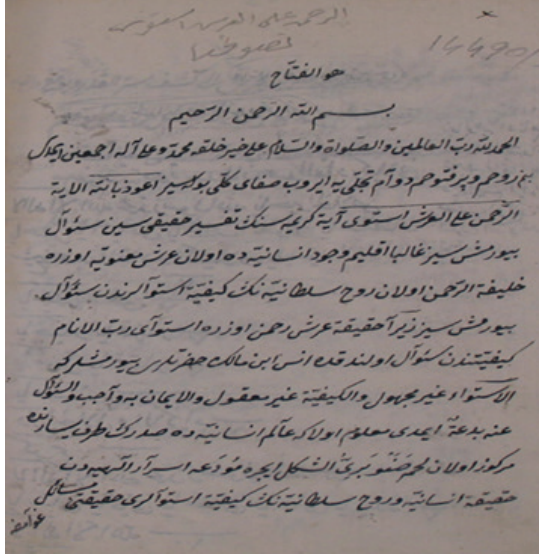 الرحمن على العرش استوى
تصوف
هو الفتاح
بسم الله الرحمن الرحيم
الحمد لله رب العالمين والصلواة والسلام على خير خلقه محمد وعلى آله اجمعين ايمدى
روحم وپر فتوحم دوام تجلى يه ايروب صفاى كلى بوله سيز اعوذ بالله الآية
الرحمن على العرش استوى آية كريمه سنك تفسير حقيقى سين سئوال
بيورمش سيز غالبا اقليم وجود انسانيه ده اولان عرش معنويه اوزره
خليفة الرحمن اولان روح سلطانيه نك كيفية استوآلرندن سئوال
بيورمش سيز زيرا حقيقة عرش رحمن اوزره استوآى رب الانام
كيفيتندن سئوال اولندقده انس ابن مالك حضرتلرى بيورمشلركه
الاستواء غير مجهول والكيفية غير معقول والايمان به واجب والسئوال
عنه بدعة ايمدى معلوم اولاكه عالم انسانيه ده صدرك طرف يسارنده
مركوز اولان لحم صنوبرى الشكل ايچره مودعه اسرار الهيه دن
حقيقة انسانيه وروح سلطانيه نك كيفية استوآلرى حقيقتى مسائل